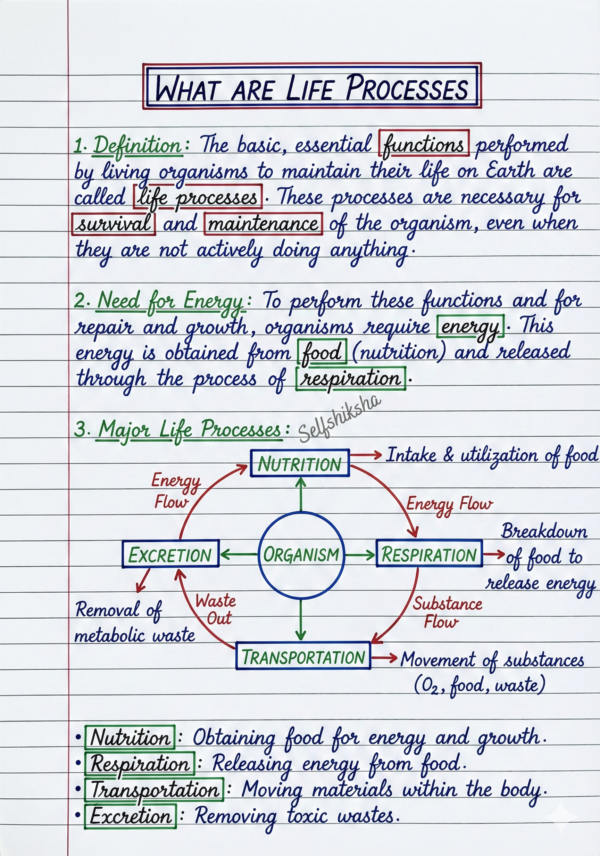 WHAT ARE LIFE PROCESSES
1. Definition: The basic, essential functions performed
by living organisms to maintain their life on Earth are
called life processes. These processes are necessary for
survival and maintenance of the organism, even when
they are not actively doing anything.
2. Need for Energy: To perform these functions and for
repair and growth, organisms require energy. This
energy is obtained from food (nutrition) and released
through the process of respiration.
3. Major Life Processes:
Selfshiksha
NUTRITION
Intake & utilization of food
Energy
Flow
Energy Flow
EXCRETION
ORGANISM
RESPIRATION
Breakdown
of food to
release energy
Removal of
metabolic waste
Waste
Out
Substance
Flow
TRANSPORTATION
Movement of substances
(O₂, food, waste)
• Nutrition: Obtaining food for energy and growth.
• Respiration: Releasing energy from food.
• Transportation: Moving materials within the body.
• Excretion: Removing toxic wastes.